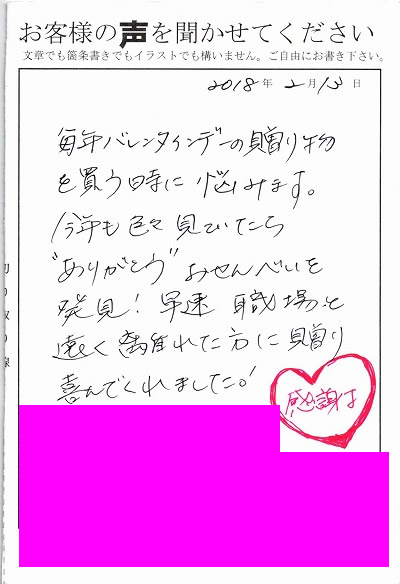 お客様の声を聞かせてください
文章でも箇条書きでもイラストでも構いません。ご自由にお書き下さい。
2018年 2月13日
毎年バレンタインデーの贈り物
を買う時に悩みます。
今年も色々見ていたら
"ありがとう"おせんべいを
発見!早速職場と
遠く離れた方に贈り
喜んでくれました!
感謝は
切り取り線